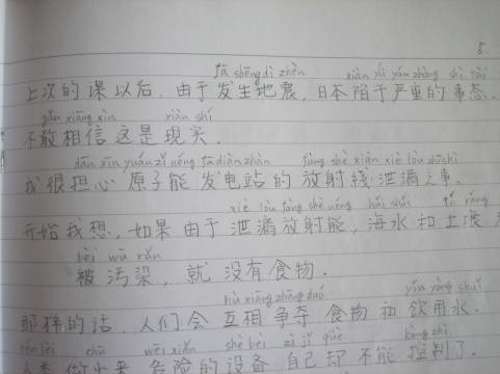 8.
fā shēng dì zhèn xiàn yú yán zhòng shì tài
上次的课以后，由于发生地震，日本陷于严重的事态.
gǎn xiāng xìn xiàn shí
不敢相信这是现实.
dān xīn yuán zǐ néng fā diàn zhàn fàng shè xiàn xiè lòu
我很担心原子能发电站的放射线泄漏之事.
xiè lòu fàng shè néng hǎi shuǐ tǔ rǎng
开始我想，如果由于泄漏放射能，海水和土壤
bèi wū rǎn
被污染，就没有食物.
hù xiāng zhēng duó yǐn yòng shuǐ
那样的话，人们会互相争夺食物和饮用水.
wēi xiǎn shè bèi zì jǐ què kòng zhì
危险的设备，自己却不能控制了.